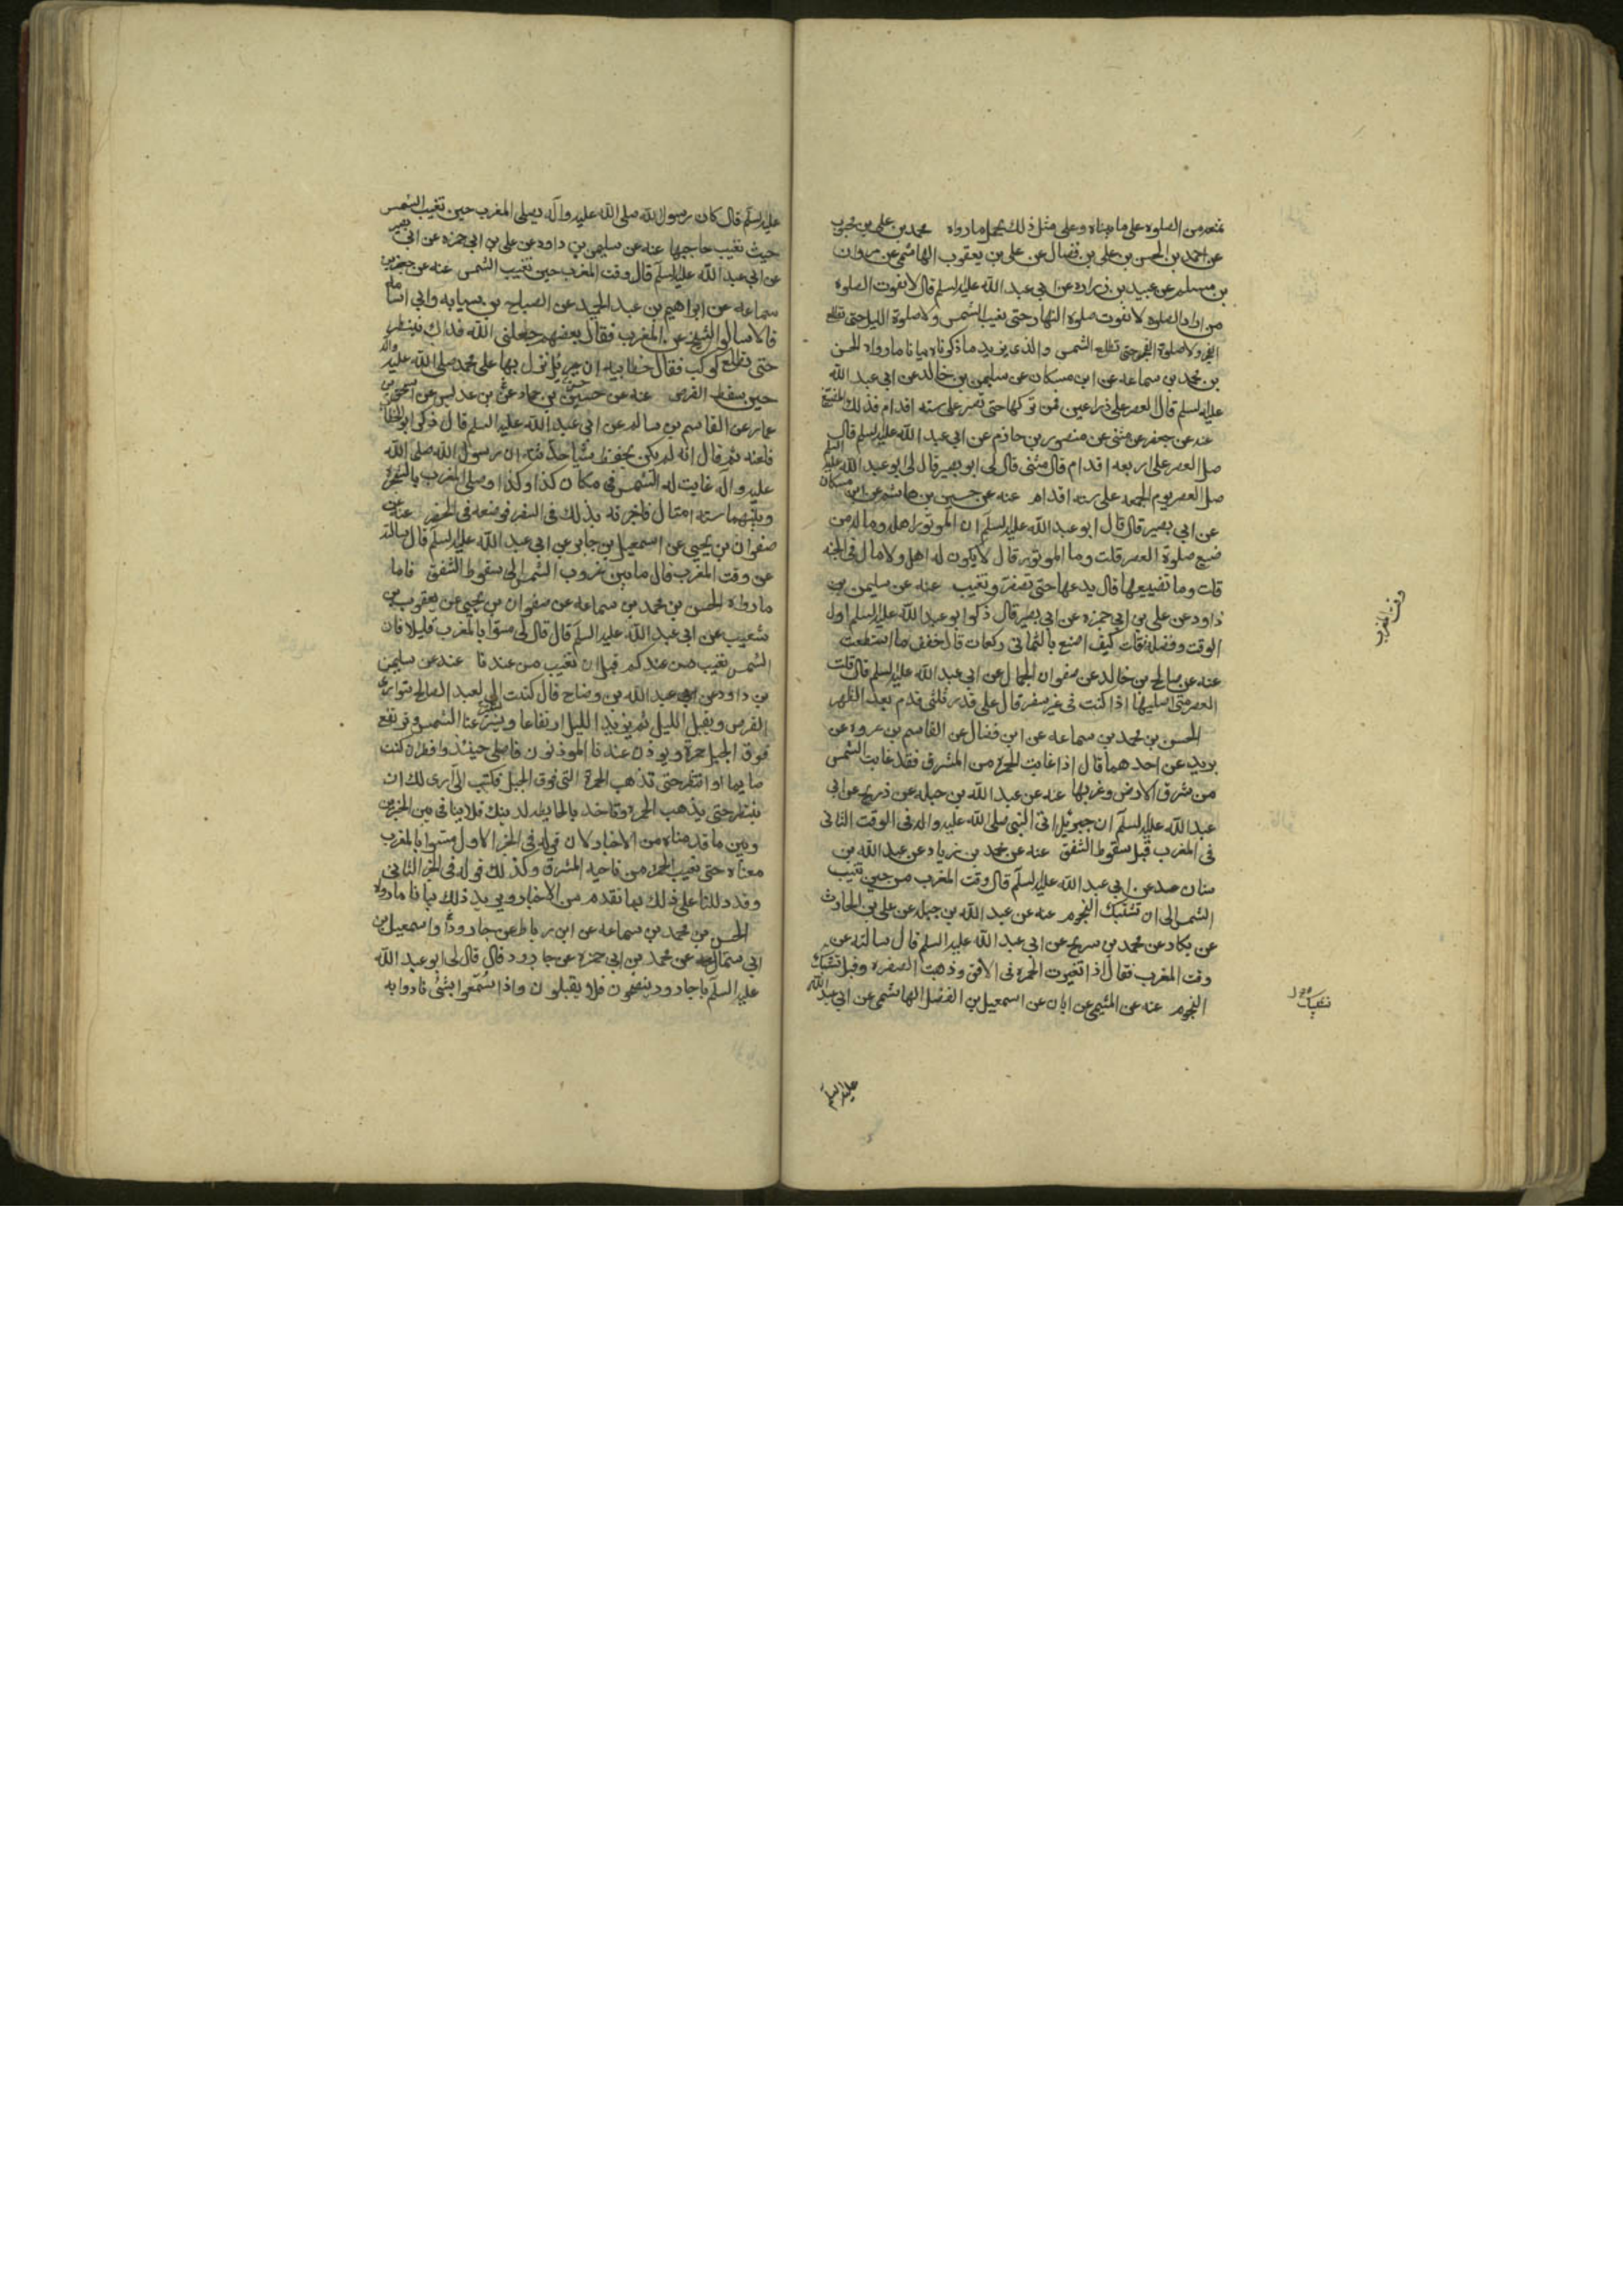 تمنعه من الصلوة على ما بيناه وعلى مثل ذلك يحمل ما رواه محمد بن علي بن محبوب
عن احمد بن الحسن بن علي بن فضال عن علي بن يعقوب الهاشمي عن مروان
بن مسلم عن عبيد بن زراره عن ابي عبد الله عليه السلم قال لا تفوت الصلوة
من اراد الصلوه لا تفوت صلوة النهار حتى تغيب الشمس ولا صلوة الليل حتى تطلع
الفجر ولا صلوة الفجر حتى تطلع الشمس والذي يزيد ما ذكرناه بيانا ما رواه الحسن
بن محمد بن سماعه عن ابن مسكان عن سليمن بن خالد عن ابي عبد الله
عليه السلم قال العصر على ذراعين فمن تركها حتى تصير على سته اقدام فذلك المضيع
عنه عن جعفر عن مثنى عن منصور بن حازم عن ابي عبد الله عليه السلم قال
صل العصر على اربعه اقدام قال مثنى قال لي ابو بصير قال لي ابو عبد الله عليه السلم
صل العصر يوم الجمعه على سته اقدام عنه عن حسين بن هاشم عن ابن مسكان
عن ابي بصير قال قال ابو عبد الله عليه السلم ان الموتور اهله وماله من
ضيع صلوة العصر قلت وما الموتور قال لا يكون له اهل ولا مال في الجنه
قلت وما تضييعها قال يدعها حتى تصفر وتغيب عنه عن سليمن بن
داود عن علي بن ابي حمزه عن ابي بصير قال ذكر ابو عبد الله عليه السلم اول
الوقت وفضله فقلت كيف اصنع بالثماني ركعات قال خفف ما استطعت
عنه عن صالح بن خالد عن صفوان الجمال عن ابي عبد الله عليه السلم قال قلت
العصر متى اصليها اذا كنت في غير سفر قال على قدر ثلثي قدم بعد الظهر
الحسن بن محمد بن سماعه عن ابن فضال عن القاسم بن عروه عن
بريد عن احدهما قال اذا غابت الحمرة من المشرق فقد غابت الشمس
من شرق الارض وغربها عنه عن عبد الله بن جبله عن ذريح عن ابي
عبد الله عليه السلم ان جبرئيل اتى النبي صلى الله عليه واله في الوقت الثاني
في المغرب قبل سقوط الشفق عنه عن محمد بن زياد عن عبد الله بن
سنان عن ابي عبد الله عليه السلم قال وقت المغرب من حين تغيب
الشمس الى ان تشتبك النجوم عنه عن عبد الله بن جبله عن علي بن الحارث
عن بكار عن محمد بن شريح عن ابي عبد الله عليه السلم قال سالته عن
وقت المغرب فقال اذا تغيرت الحمرة في الافق وذهبت الصفره وقبل تشتبك
النجوم عنه عن الميثمي عن ابان عن اسمعيل بن الفضل الهاشمي عن ابي عبد الله
عليه السلم
وقت المغرب
تشتبك
عليه السلم قال كان رسول الله صلى الله عليه واله يصلي المغرب حين تغيب الشمس
حيث تغيب حاجبها عنه عن سليمن بن داود عن علي بن ابي حمزه عن ابي بصير
عن ابي عبد الله عليه السلم قال وقت المغرب حين تغيب الشمس عنه عن جعفر بن
سماعه عن ابراهيم بن عبد الحميد عن الصباح بن سيابه وابي اسامه
قالا سالوا الشيخ عن المغرب فقال بعضهم جعلني الله فداك ننتظر
حتى يطلع كوكب فقال خطابيه ان جبرئيل نزل بها على محمد صلى الله عليه واله
حين سقط القرص عنه عن حسين بن حماد بن عديس عن اسحق بن
عمار عن القاسم بن سالم عن ابي عبد الله عليه السلم قال ذكر ابو الخطاب
فلعنه ثم قال انه لم يكن يحفظ شيئا حدثته ان رسول الله صلى الله
عليه واله غابت له الشمس في مكان كذا وكذا وصلى المغرب بالشجرة
وبينهما سته اميال فاخبرته بذلك في السفر فوضعه في الحضر عنه عن
صفوان بن يحيى عن اسمعيل بن جابر عن ابي عبد الله عليه السلم قال سالته
عن وقت المغرب قال ما بين غروب الشمس الى سقوط الشفق فاما
ما رواه الحسن بن محمد بن سماعه عن صفوان بن يحيى عن يعقوب بن
شعيب عن ابي عبد الله عليه السلم قال قال لي مسوا بالمغرب قليلا فان
الشمس تغيب من عندكم قبل ان تغيب من عندنا عنه عن سليمن
بن داود عن عبد الله بن وضاح قال كتبت الى العبد الصالح يتوارى
القرص ويقبل الليل ثم يزيد الليل ارتفاعا ويستتر عنا الشمس وترتفع
فوق الجبل حمرة ويوذن عندنا الموذنون فاصلي حينئذ وافطر ان كنت
صايما او انتظر حتى تذهب الحمرة التي فوق الجبل فكتب الي ارى لك ان
تنتظر حتى يذهب الحمره وتاخذ بالحايطه لدينك فلا ينافي بين الخبرين
وبين ما قدمناه من الاخبار لان قوله في الخبر الاول مسوا بالمغرب
معناه حتى تغيب الحمره من ناحيه المشرق وكذلك قوله في الخبر الثاني
وقد دللنا على ذلك بما تقدم من الاخبار ويزيد ذلك بيانا ما رواه
الحسن بن محمد بن سماعه عن ابن رباط عن جارود او اسمعيل بن
ابي سمال عن محمد بن ابي حمزه عن جارود قال قال لي ابو عبد الله
عليه السلم يا جارود ينصحون فلا يقبلون واذا سمعوا بشئ نادوا به